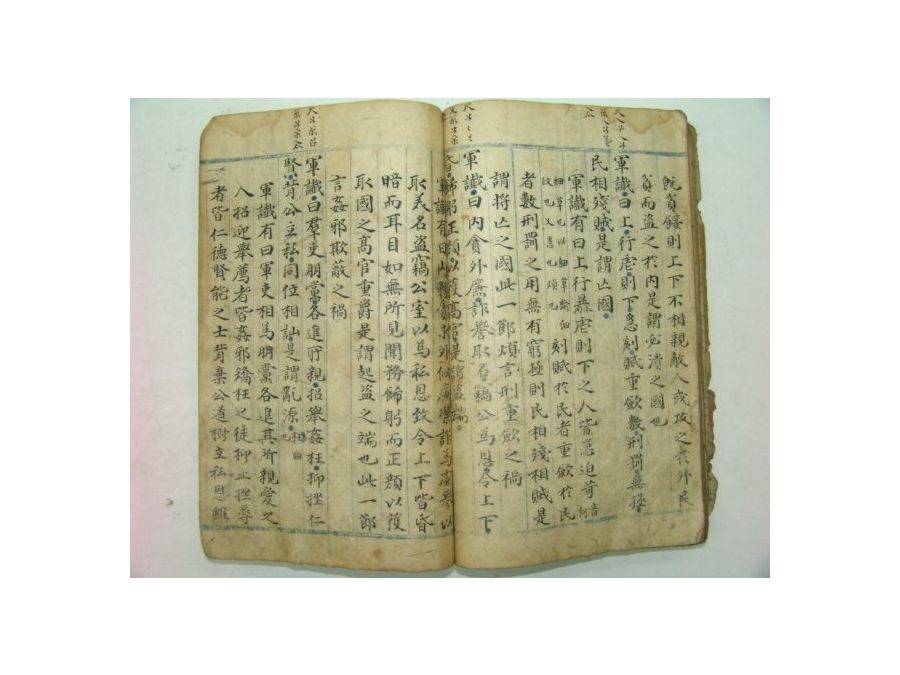 既貧餒則上下不相親敵人或攻之於外民
貧而盜之於內是謂必潰之國也
軍讖曰上行虐則下急刻賦重斂數刑罰無極
民相殘賊是謂亡國
軍讖有曰上行暴虐則下之人皆急迫苛音何
細草也以細草喻細政也又急也煩也刻賦於民者重斂於民
者數刑罰之用無有窮極則民相殘相賊是
謂將亡之國此一節煩言刑重斂之禍
軍讖曰內貪外廉詐譽取名竊公為恩令上下
昏飾躬正顔以獲高官是謂盜端
軍讖有曰外似廉潔詐為虛譽以
取美名盜竊公室以為私恩致令上下皆昏
暗而耳目如無所見聞務餙躬而正顔以獲
取國之高官重爵是謂起盜之端也此一節
言姦邪欺蔽之禍
軍讖曰羣吏朋黨各進所親招舉姦枉抑挫仁
賢背公立私同位相訕是謂亂源
軍讖有曰軍吏相為朋黨各進其所親愛之
人招迎舉薦者皆姦邪矯枉之徒抑止挫辱
者皆仁德賢能之士背棄公道樹立私恩雖